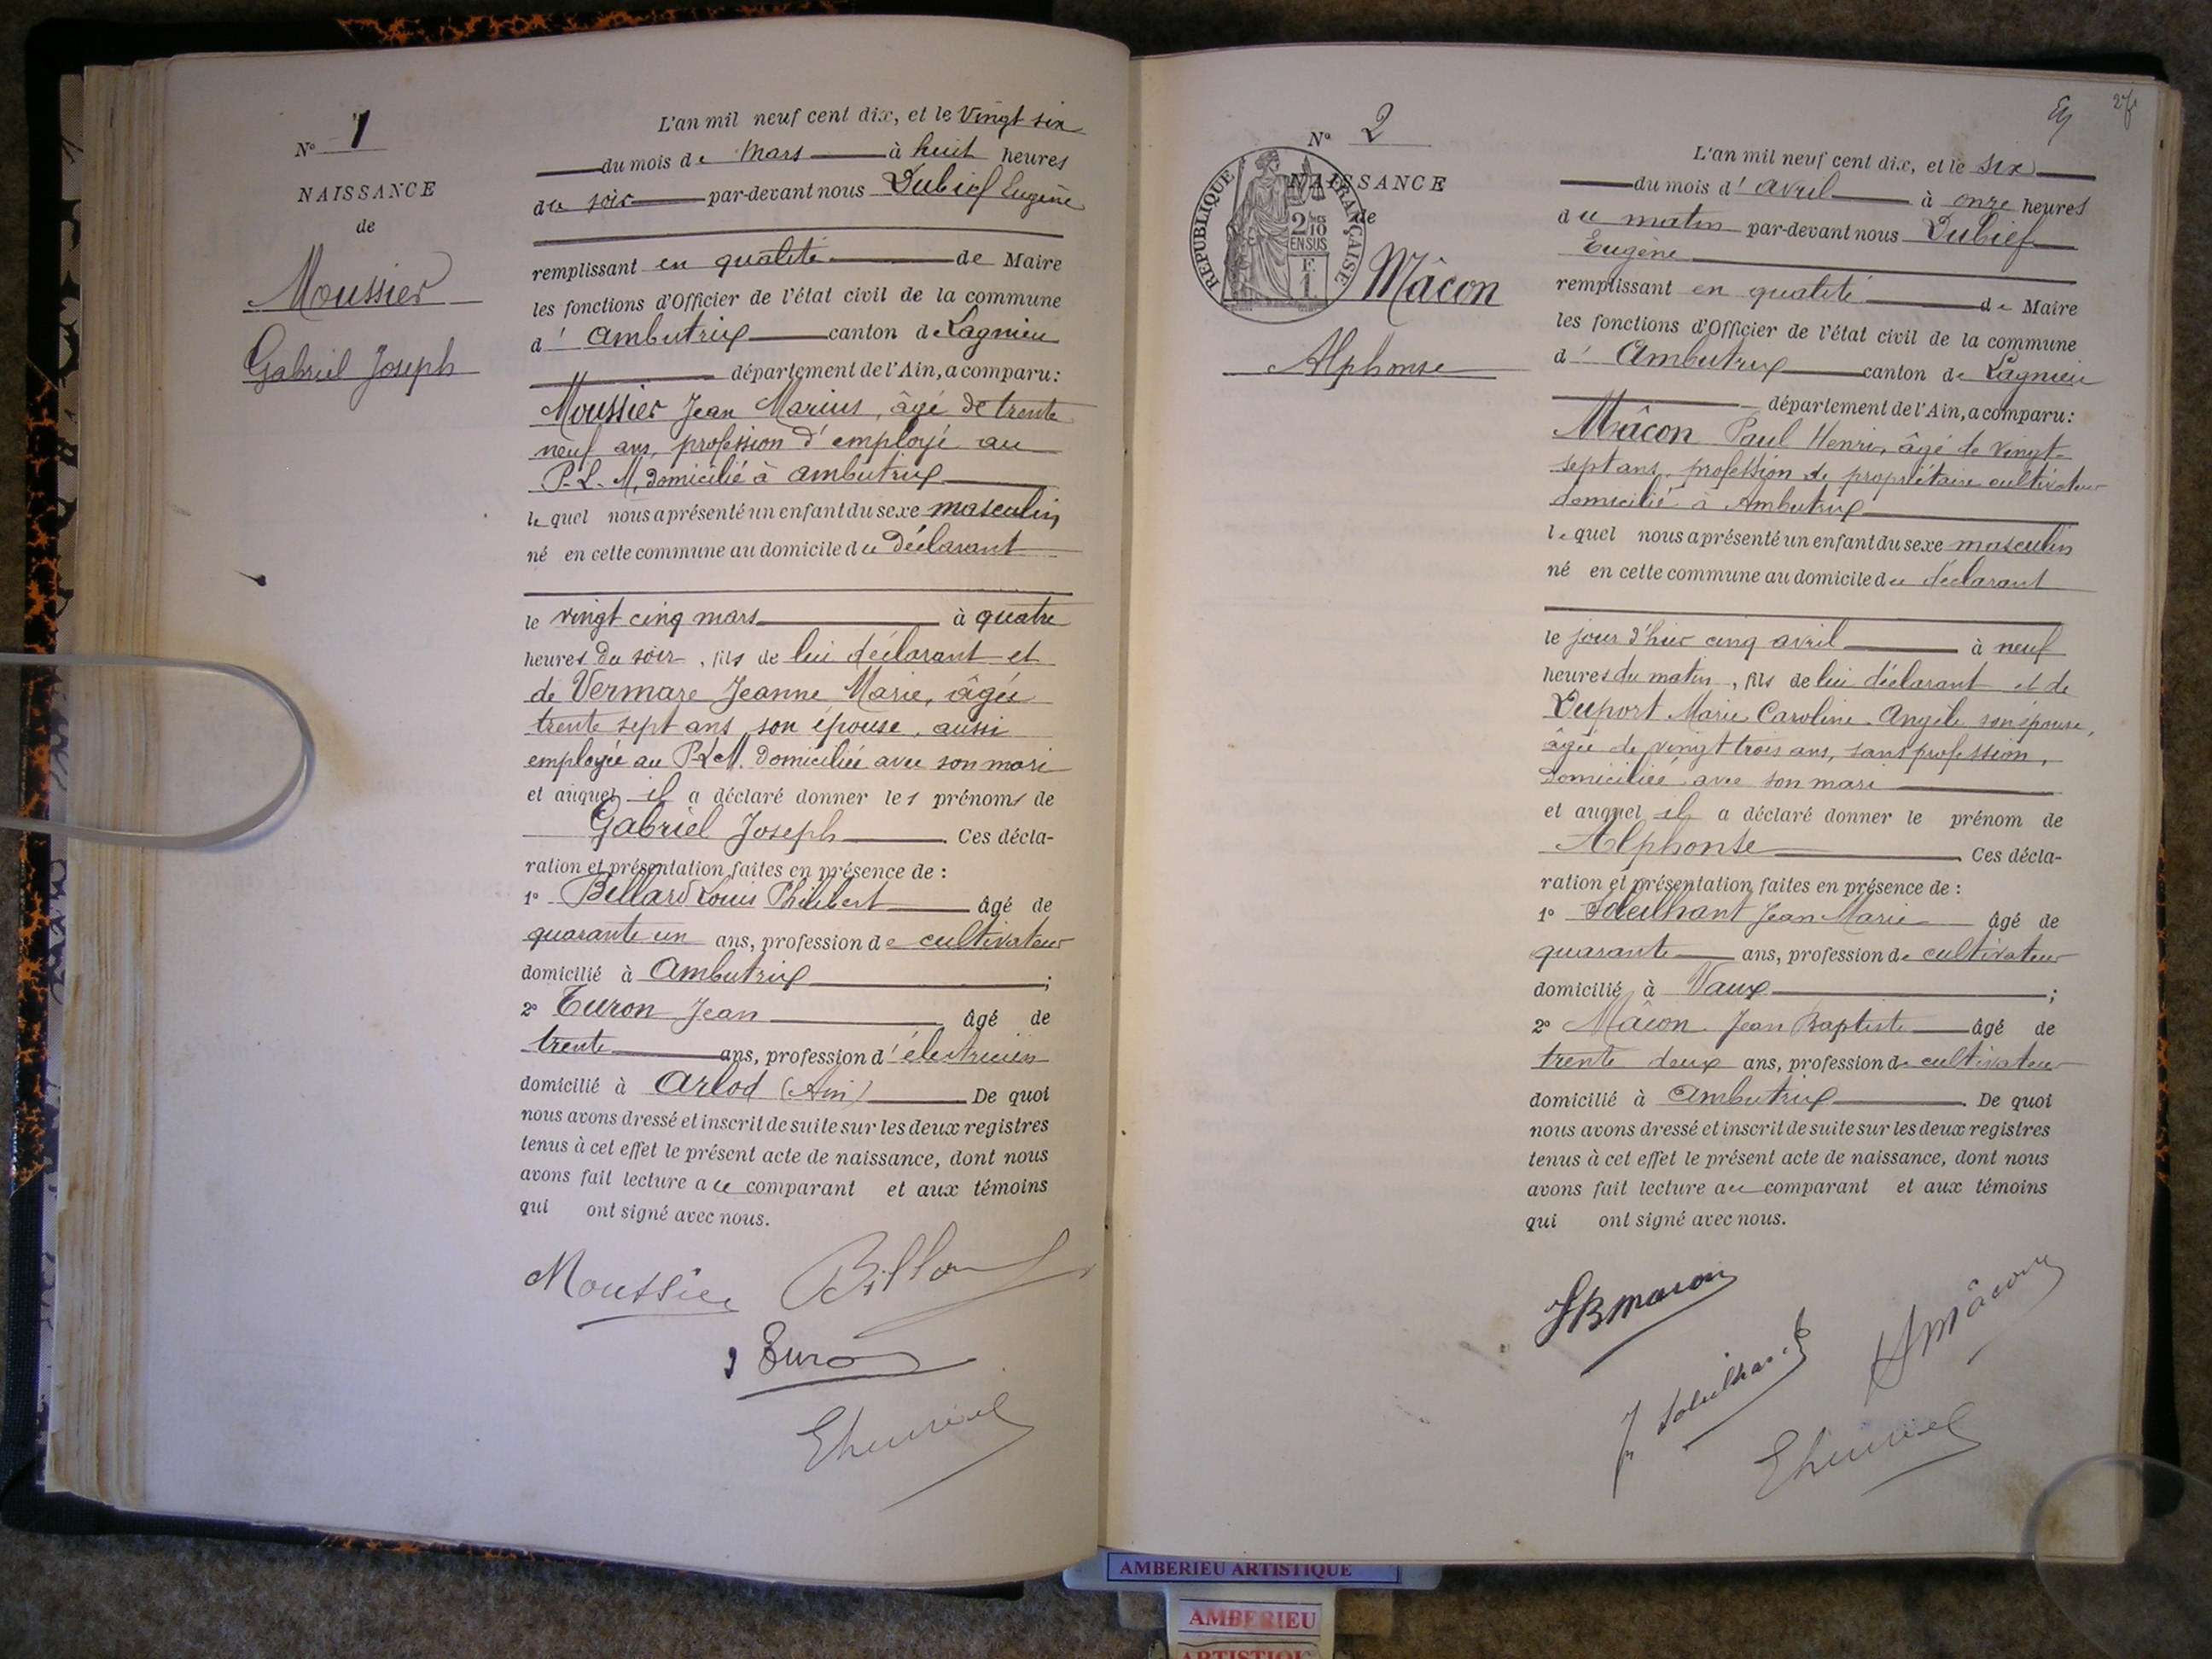 N° 1
NAISSANCE
de
Moussier
Gabriel Joseph
L'an mil neuf cent dix, et le Vingt six
du mois de Mars à huit heures
du soir par-devant nous Dubief Eugène
remplissant en qualité de Maire
les fonctions d'Officier de l'état civil de la commune
d' Ambutrix canton de Lagnieu
département de l'Ain, a comparu:
Moussier Jean Marius, âgé de trente
neuf ans, profession d'employé au
P.L.M, domicilié à Ambutrix
lequel nous a présenté un enfant du sexe masculin
né en cette commune au domicile du déclarant
le vingt cinq mars à quatre
heures du soir, fils de lui déclarant et
de Vermare Jeanne Marie, âgée
trente sept ans son épouse, aussi
employée au PLM. domiciliée avec son mari
et auquel il a déclaré donner les prénoms de
Gabriel Joseph. Ces décla-
ration et présentation faites en présence de :
1° Billard Louis Philibert âgé de
quarante un ans, profession de cultivateur
domicilié à Ambutrix ;
2° Turon Jean âgé de
trente ans, profession d'électricien
domicilié à Arlod (Ain) De quoi
nous avons dressé et inscrit de suite sur les deux registres
tenus à cet effet le présent acte de naissance, dont nous
avons fait lecture au comparant et aux témoins
qui ont signé avec nous.
Moussier Billard
J Turon
N° 2
NAISSANCE
de
RÉPUBLIQUE FRANÇAISE
2/10
EN SUS
F.
1.
Mâcon
Alphonse
L'an mil neuf cent dix, et le six
du mois d'avril à onze heures
du matin par-devant nous Dubief
Eugène
remplissant en qualité de Maire
les fonctions d'Officier de l'état civil de la commune
d' Ambutrix canton de Lagnieu
département de l'Ain, a comparu:
Mâcon Paul Henri, âgé de vingt-
sept ans, profession de propriétaire cultivateur
domicilié à Ambutrix
lequel nous a présenté un enfant du sexe masculin
né en cette commune au domicile du déclarant
le jour d'hier cinq avril à neuf
heures du matin, fils de lui déclarant et de
Duport Marie Caroline Angèle son épouse,
âgée de vingt trois ans, sans profession,
domiciliée avec son mari
et auquel il a déclaré donner le prénom de
Alphonse. Ces décla-
ration et présentation faites en présence de :
1° Soleilhant Jean Marie âgé de
quarante ans, profession de cultivateur
domicilié à Vaux ;
2° Mâcon Jean Baptiste âgé de
trente deux ans, profession de cultivateur
domicilié à Ambutrix. De quoi
nous avons dressé et inscrit de suite sur les deux registres
tenus à cet effet le présent acte de naissance, dont nous
avons fait lecture au comparant et aux témoins
qui ont signé avec nous.
JB macon
Mâcon
AMBERIEU ARTISTIQUE
AMBERIEU